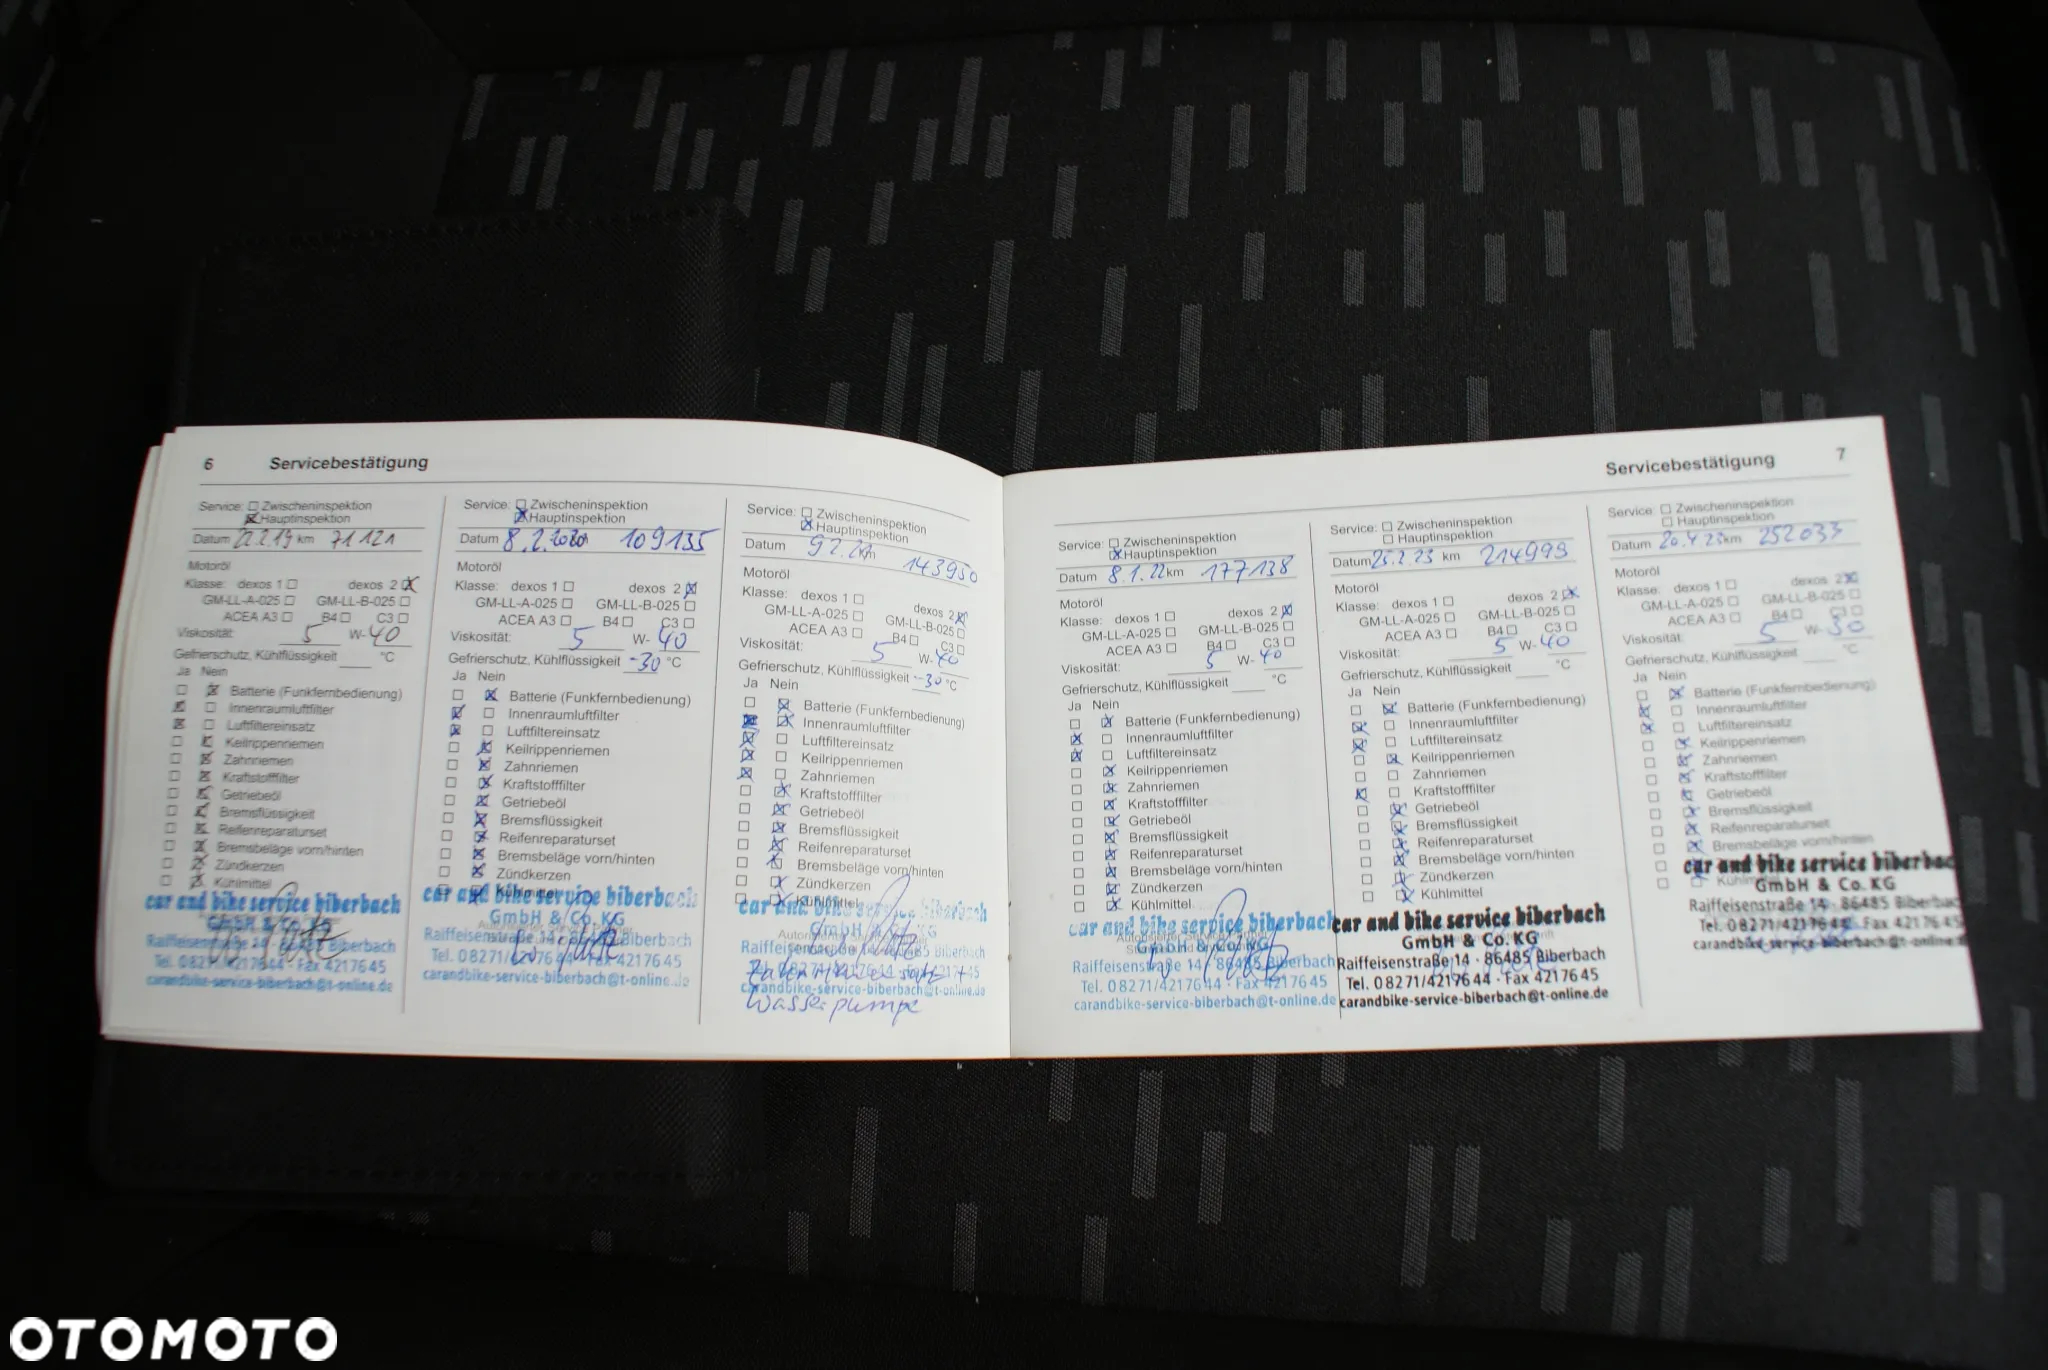 6 Servicebestätigung
Service: Zwischeninspektion
Hauptinspektion
Datum 22.2.19 km 71121
Motoröl
Klasse: dexos 1 dexos 2
GM-LL-A-025 GM-LL-B-025
ACEA A3 B4 C3
Viskosität: 5 W- 40
Gefrierschutz, Kühlflüssigkeit °C
Ja Nein
Batterie (Funkfernbedienung)
Innenraumluftfilter
Luftfiltereinsatz
Keilrippenriemen
Zahnriemen
Kraftstofffilter
Getriebeöl
Bremsflüssigkeit
Reifenreparaturset
Bremsbeläge vorn/hinten
Zündkerzen
Kühlmittel
car and bike service biberbach
GmbH & Co. KG
Raiffeisenstraße 14 · 86485 Biberbach
Tel. 08271/4217644 · Fax 4217645
carandbike-service-biberbach@t-online.de
Service: Zwischeninspektion
Hauptinspektion
Datum 8.2.2020 109135
Motoröl
Klasse: dexos 1 dexos 2
GM-LL-A-025 GM-LL-B-025
ACEA A3 B4 C3
Viskosität: 5 W- 40
Gefrierschutz, Kühlflüssigkeit -30 °C
Ja Nein
Batterie (Funkfernbedienung)
Innenraumluftfilter
Luftfiltereinsatz
Keilrippenriemen
Zahnriemen
Kraftstofffilter
Getriebeöl
Bremsflüssigkeit
Reifenreparaturset
Bremsbeläge vorn/hinten
Zündkerzen
Kühlmittel
car and bike service biberbach
GmbH & Co. KG
Raiffeisenstraße 14 · 86485 Biberbach
Tel. 08271/4217644 · Fax 4217645
carandbike-service-biberbach@t-online.de
Service: Zwischeninspektion
Hauptinspektion
Datum 9.2.21 km 143950
Motoröl
Klasse: dexos 1 dexos 2
GM-LL-A-025 GM-LL-B-025
ACEA A3 B4 C3
Viskosität: 5 W- 40
Gefrierschutz, Kühlflüssigkeit -30 °C
Ja Nein
Batterie (Funkfernbedienung)
Innenraumluftfilter
Luftfiltereinsatz
Keilrippenriemen
Zahnriemen
Kraftstofffilter
Getriebeöl
Bremsflüssigkeit
Reifenreparaturset
Bremsbeläge vorn/hinten
Zündkerzen
Kühlmittel
car and bike service biberbach
GmbH & Co. KG
Raiffeisenstraße 14 · 86485 Biberbach
Tel. 08271/4217644 · Fax 4217645
carandbike-service-biberbach@t-online.de
Wasserpumpe
Servicebestätigung 7
Service: Zwischeninspektion
Hauptinspektion
Datum 8.1.22 km 177138
Motoröl
Klasse: dexos 1 dexos 2
GM-LL-A-025 GM-LL-B-025
ACEA A3 B4 C3
Viskosität: 5 W- 40
Gefrierschutz, Kühlflüssigkeit °C
Ja Nein
Batterie (Funkfernbedienung)
Innenraumluftfilter
Luftfiltereinsatz
Keilrippenriemen
Zahnriemen
Kraftstofffilter
Getriebeöl
Bremsflüssigkeit
Reifenreparaturset
Bremsbeläge vorn/hinten
Zündkerzen
Kühlmittel
car and bike service biberbach
GmbH & Co. KG
Raiffeisenstraße 14 · 86485 Biberbach
Tel. 08271/4217644 · Fax 4217645
carandbike-service-biberbach@t-online.de
Service: Zwischeninspektion
Hauptinspektion
Datum 25.2.23 km 214993
Motoröl
Klasse: dexos 1 dexos 2
GM-LL-A-025 GM-LL-B-025
ACEA A3 B4 C3
Viskosität: 5 W- 40
Gefrierschutz, Kühlflüssigkeit °C
Ja Nein
Batterie (Funkfernbedienung)
Innenraumluftfilter
Luftfiltereinsatz
Keilrippenriemen
Zahnriemen
Kraftstofffilter
Getriebeöl
Bremsflüssigkeit
Reifenreparaturset
Bremsbeläge vorn/hinten
Zündkerzen
Kühlmittel
car and bike service biberbach
GmbH & Co. KG
Raiffeisenstraße 14 · 86485 Biberbach
Tel. 08271/4217644 · Fax 4217645
carandbike-service-biberbach@t-online.de
Service: Zwischeninspektion
Hauptinspektion
Datum km 252033
Motoröl
Klasse: dexos 1 dexos 2
GM-LL-A-025 GM-LL-B-025
ACEA A3 B4 C3
Viskosität: 5 W- 30
Gefrierschutz, Kühlflüssigkeit °C
Ja Nein
Batterie (Funkfernbedienung)
Innenraumluftfilter
Luftfiltereinsatz
Keilrippenriemen
Zahnriemen
Kraftstofffilter
Getriebeöl
Bremsflüssigkeit
Reifenreparaturset
Bremsbeläge vorn/hinten
car and bike service biberbac
GmbH & Co. KG
Raiffeisenstraße 14 · 86485 Biberbac
Tel. 08271/4217644 · Fax 4217645
carandbike-service-biberbach@t-online.de
OTOMOTO